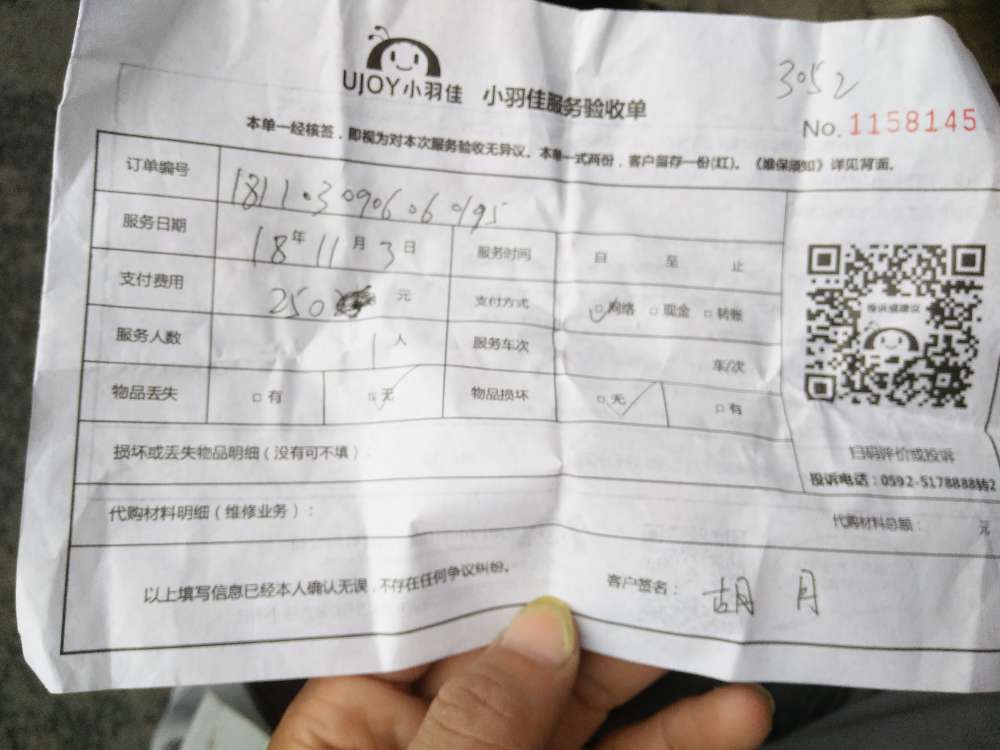 UJOY小羽佳 小羽佳服务验收单
3052
No.1158145
本单一经核签，即视为对本次服务验收无异议。本单一式两份，客户留存一份(红)。《维保须知》详见背面。
订单编号 1811030906060195
服务日期 18年11月3日 服务时间 自 至 止
支付费用 250 元 支付方式 □网络 □现金 □转账
服务人数 1人 服务车次 车/次
物品丢失 □有 □无 物品损坏 □无 □有
投诉或建议
扫码评价或投诉
投诉电话：0592-5178888转2
损坏或丢失物品明细（没有可不填）：
代购材料明细（维修业务）： 代购材料总额： 元
以上填写信息已经本人确认无误，不存在任何争议纠纷。 客户签名：胡月